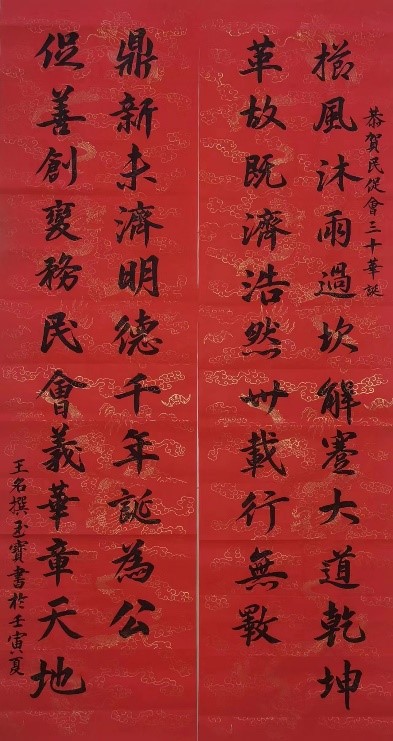 恭賀民促會三十華誕
櫛風沐雨過坎解蹇大道乾坤
革故既濟浩然卅載行無斁
促善創變務民會義華章天地
鼎新未濟明德千年誕為公
王名撰玉寶書於壬寅夏